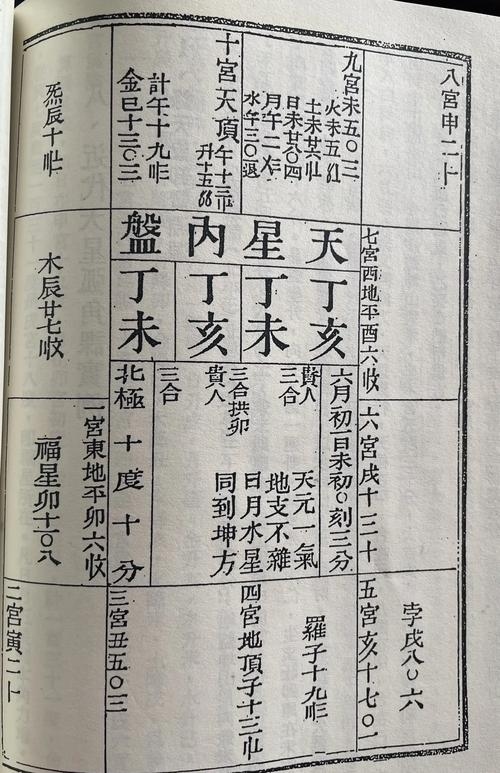 八宮申二十
九宮未五〇三
火未五
土未廿
日未廿八〇四
月午二
水午三〇退
十宮天頂
午十三
升十五
計午十九
金巳十三〇三
炁辰十
天星內盤
七宮酉地平酉六收
丁亥
丁未
丁亥
丁未
木辰廿七收
六宮戌十三十
六月初一日未初〇刻三分
貴人
三合
三合拱卯
貴人
三合
天元一氣
地支不雜
日月水星
同到坤方
北極十度十分
一宮東地平卯六收
福星卯十一〇八
孛戌八〇六
五宮亥十七〇一
羅子十九
四宮地頂子十三
三宮丑五〇三
二宮寅二十